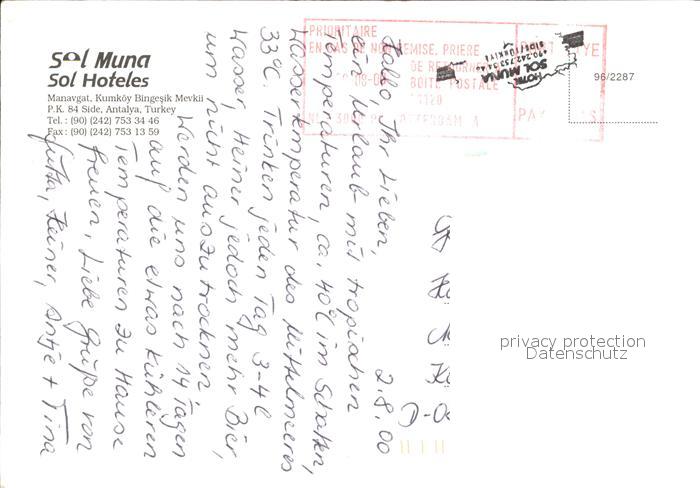 Sol Muna
Sol Hoteles
Manavgat, Kumköy Bingeşik Mevkii
P.K. 84 Side, Antalya, Turkey
Tel. : (90) (242) 753 34 46
Fax : (90) (242) 753 13 59
PRIORITAIRE
EN CAS DE NON REMISE, PRIERE
DE RETOURNER
BOITE POSTALE
HOTEL
SOL MUNA
96/2287
2.8.00
Hallo, Ihr Lieben,
ein Urlaub mit tropischen
Temperaturen, ca. 40°C im Schatten,
Wassertemperatur des Mittelmeeres
33°C. Trinken jeden Tag 3-4 l
Wasser, Heiner jedoch mehr Bier,
um nicht auszutrocknen.
Werden uns nach 14 Tagen
auf die etwas kühleren
Temperaturen zu Hause
freuen. Liebe Grüße von
Jutta, Heiner, Antje + Tina
D-
privacy protection
Datenschutz